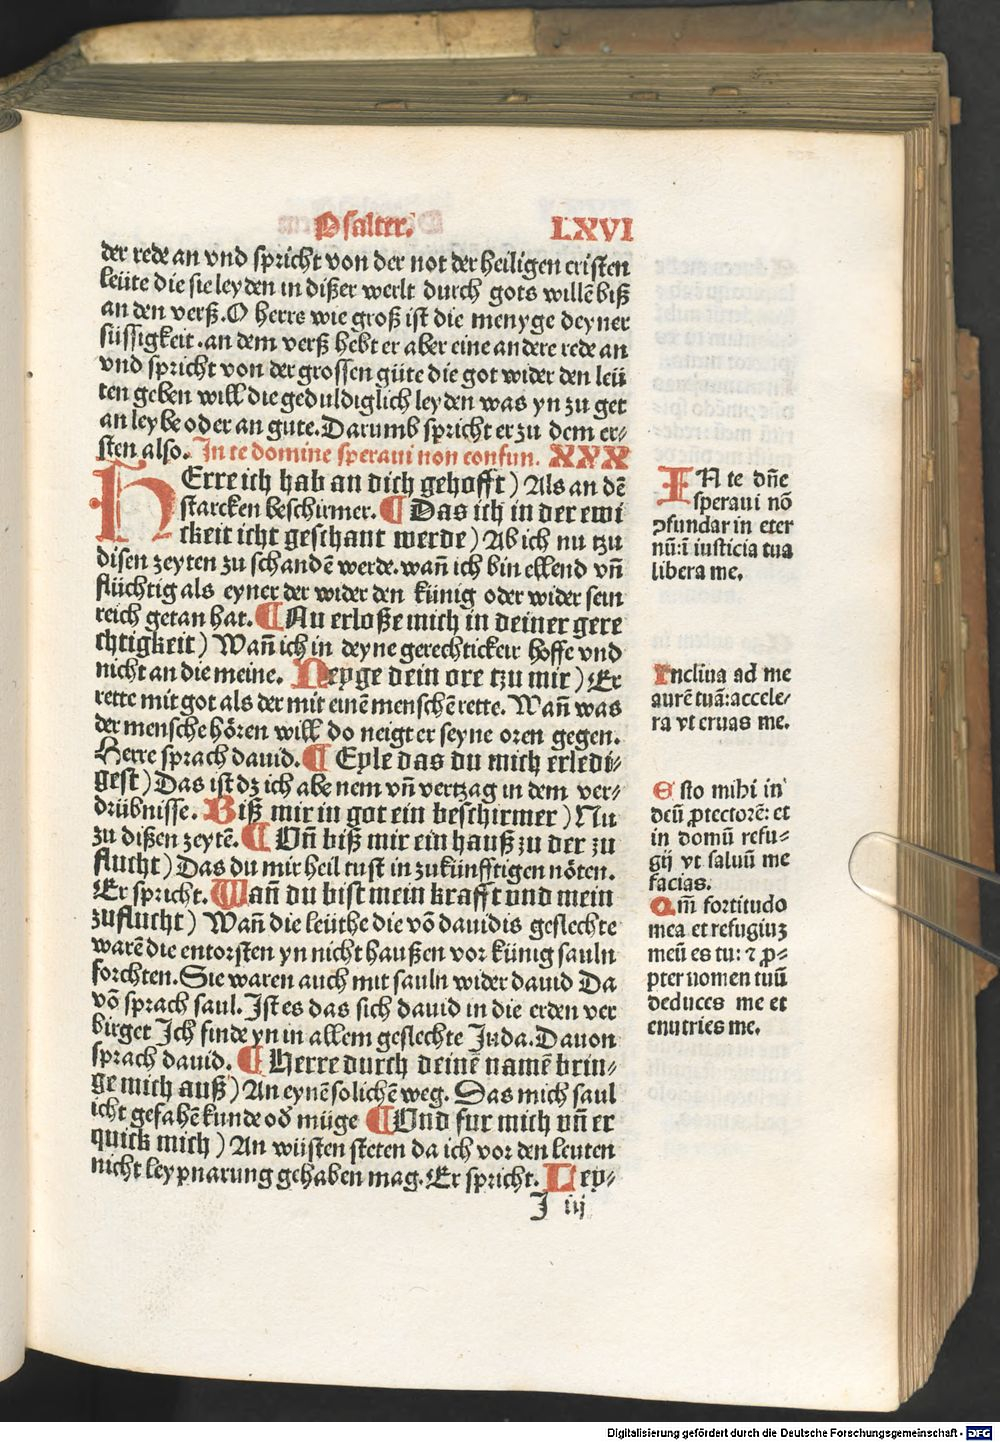 Psalter. LXVI
der rede an vnd spricht von der not der heiligen cristen
leüte die sie leyden in dißer werlt durch gots willē biß
an den verß. O herre wie groß ist die menyge deyner
süssigkeit. an dem verß hebt er aber eine andere rede an
vnd spricht von der grossen güte die got wider den leü
ten geben will die geduldiglich leyden was yn zu get
an leybe oder an gute. Darumb spricht er zu dem er⸗
sten also. In te domine speraui non confun. XXX
HErre ich hab an dich gehofft) Als an dē
starcken beschirmer. ¶ Das ich in der ewi
ckeit icht geschant werde) Ab ich nu tzu
disen zeyten zu schandē werde. wañ ich bin ellend vñ
flüchtig als eyner der wider den künig oder wider sein
reich getan hat. ¶ Nu erloße mich in deiner gere
chtigkeit) Wañ ich in deyne gerechtickeit hoffe vnd
nicht an die meine. Neyge dein ore tzu mir) Er
rette mit got als der mit einē menschē rette. Wañ was
der mensche hören will do neigt er seyne oren gegen.
Herre sprach dauid. ¶ Eyle das du mich erledi⸗
gest) Das ist dz ich abe nem vñ vertzag in dem ver⸗
drübnisse. Biß mir in got ein beschirmer) Nu
zu dißen zeytē. ¶ Vñ biß mir ein hauß zu der zu
flucht) Das du mir heil tust in zukünfftigen nöten.
Er spricht. Wañ du bist mein krafft vnd mein
zuflucht) Wañ die leüthe die vō dauidis geslechte
warē die entorsten yn nicht haußen vor künig sauln
forchten. Sie waren auch mit sauln wider dauid Da
vō sprach saul. Ist es das sich dauid in die erden ver
birget Ich finde yn in allem geslechte Juda. Dauon
sprach dauid. ¶ Herre durch deinē namē brin⸗
ge mich auß) An eynē solichē weg. Das mich saul
icht gefahē kunde oď müge ¶ Vnd fur mich vñ er
quick mich) An wüsten steten da ich vor den leuten
nicht leypnarung gehaben mag. Er spricht. Ley⸗
J iij
IN te dñe
speraui nō
ꝯfundar in eter
nū: ī iusticia tua
libera me.
Inclina ad me
aurē tuā: accele⸗
ra vt eruas me.
Esto mihi in
deū ꝓtectorē: et
in domū refu⸗
gij vt saluū me
facias.
Qm̄ fortitudo
mea et refugiuꝫ
meū es tu: ⁊ ꝓ⸗
pter nomen tuū
deduces me et
enutries me.
Digitalisierung gefördert durch die Deutsche Forschungsgemeinschaft - DFG